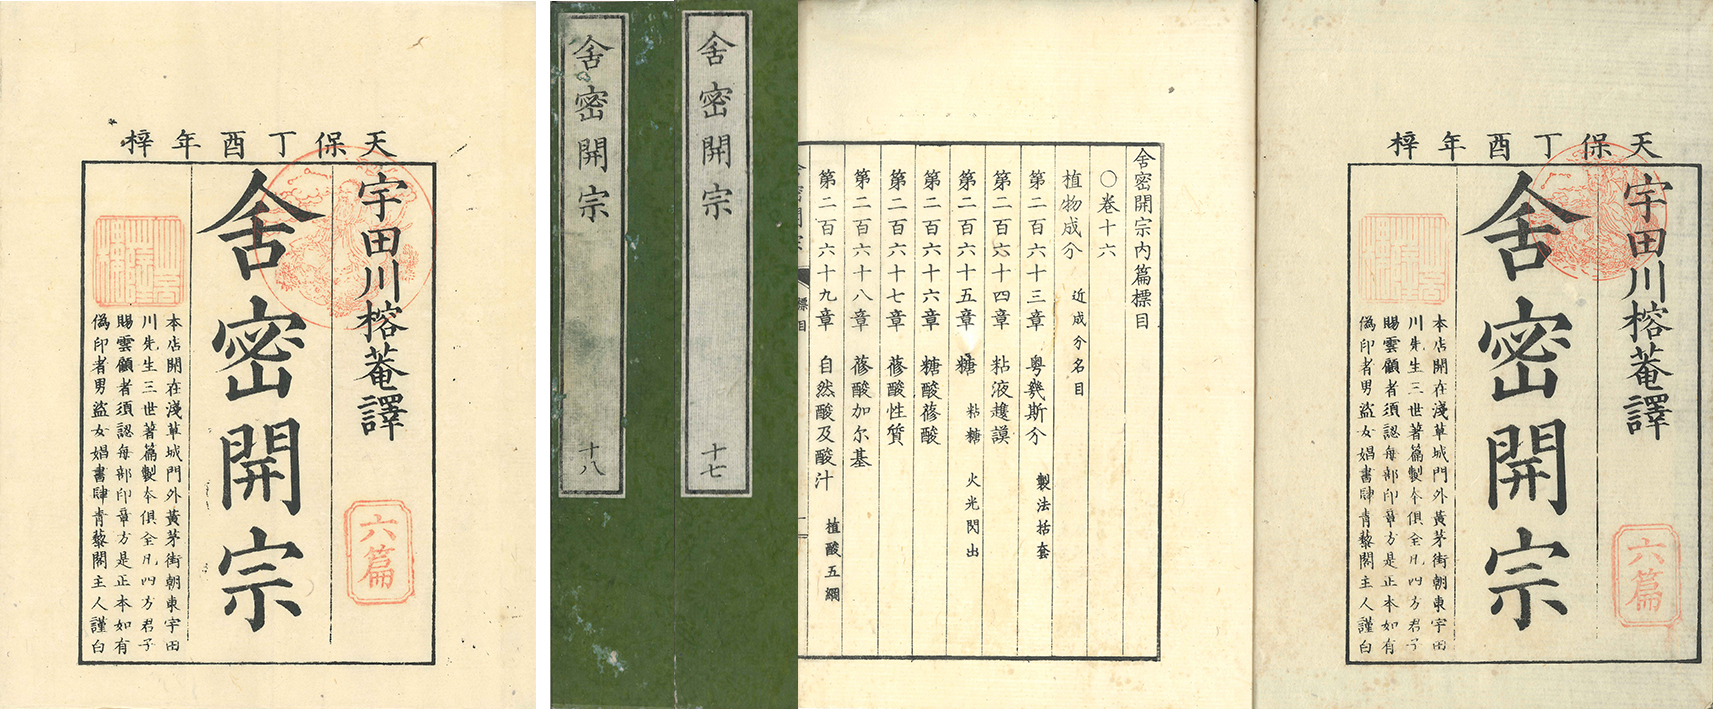 天保丁酉年梓
宇田川榕菴譯
六篇
舍密開宗
本店開在淺草城門外黃茅街朝東宇田
川先生三世著篇製本俱全凡四方君子
賜雲顧者須認每部印章方是正本如有
偽印者男盜女娼書肆青藜閣主人謹白
舍密開宗
十八
舍密開宗
十七
舍密開宗内篇標目
〇卷十六
植物成分 近成分名目
第二百六十三章 粤幾斯分 製法括套
第二百六十四章 粘液護謨
第二百六十五章 糖 粘糖 火光閃出
第二百六十六章 糖酸蓚酸
第二百六十七章 蓚酸性質
第二百六十八章 蓚酸加尔基
第二百六十九章 自然酸及酸汁 植酸五綱
標目
天保丁酉年梓
宇田川榕菴譯
六篇
舍密開宗
本店開在淺草城門外黃茅街朝東宇田
川先生三世著篇製本俱全凡四方君子
賜雲顧者須認每部印章方是正本如有
偽印者男盜女娼書肆青藜閣主人謹白